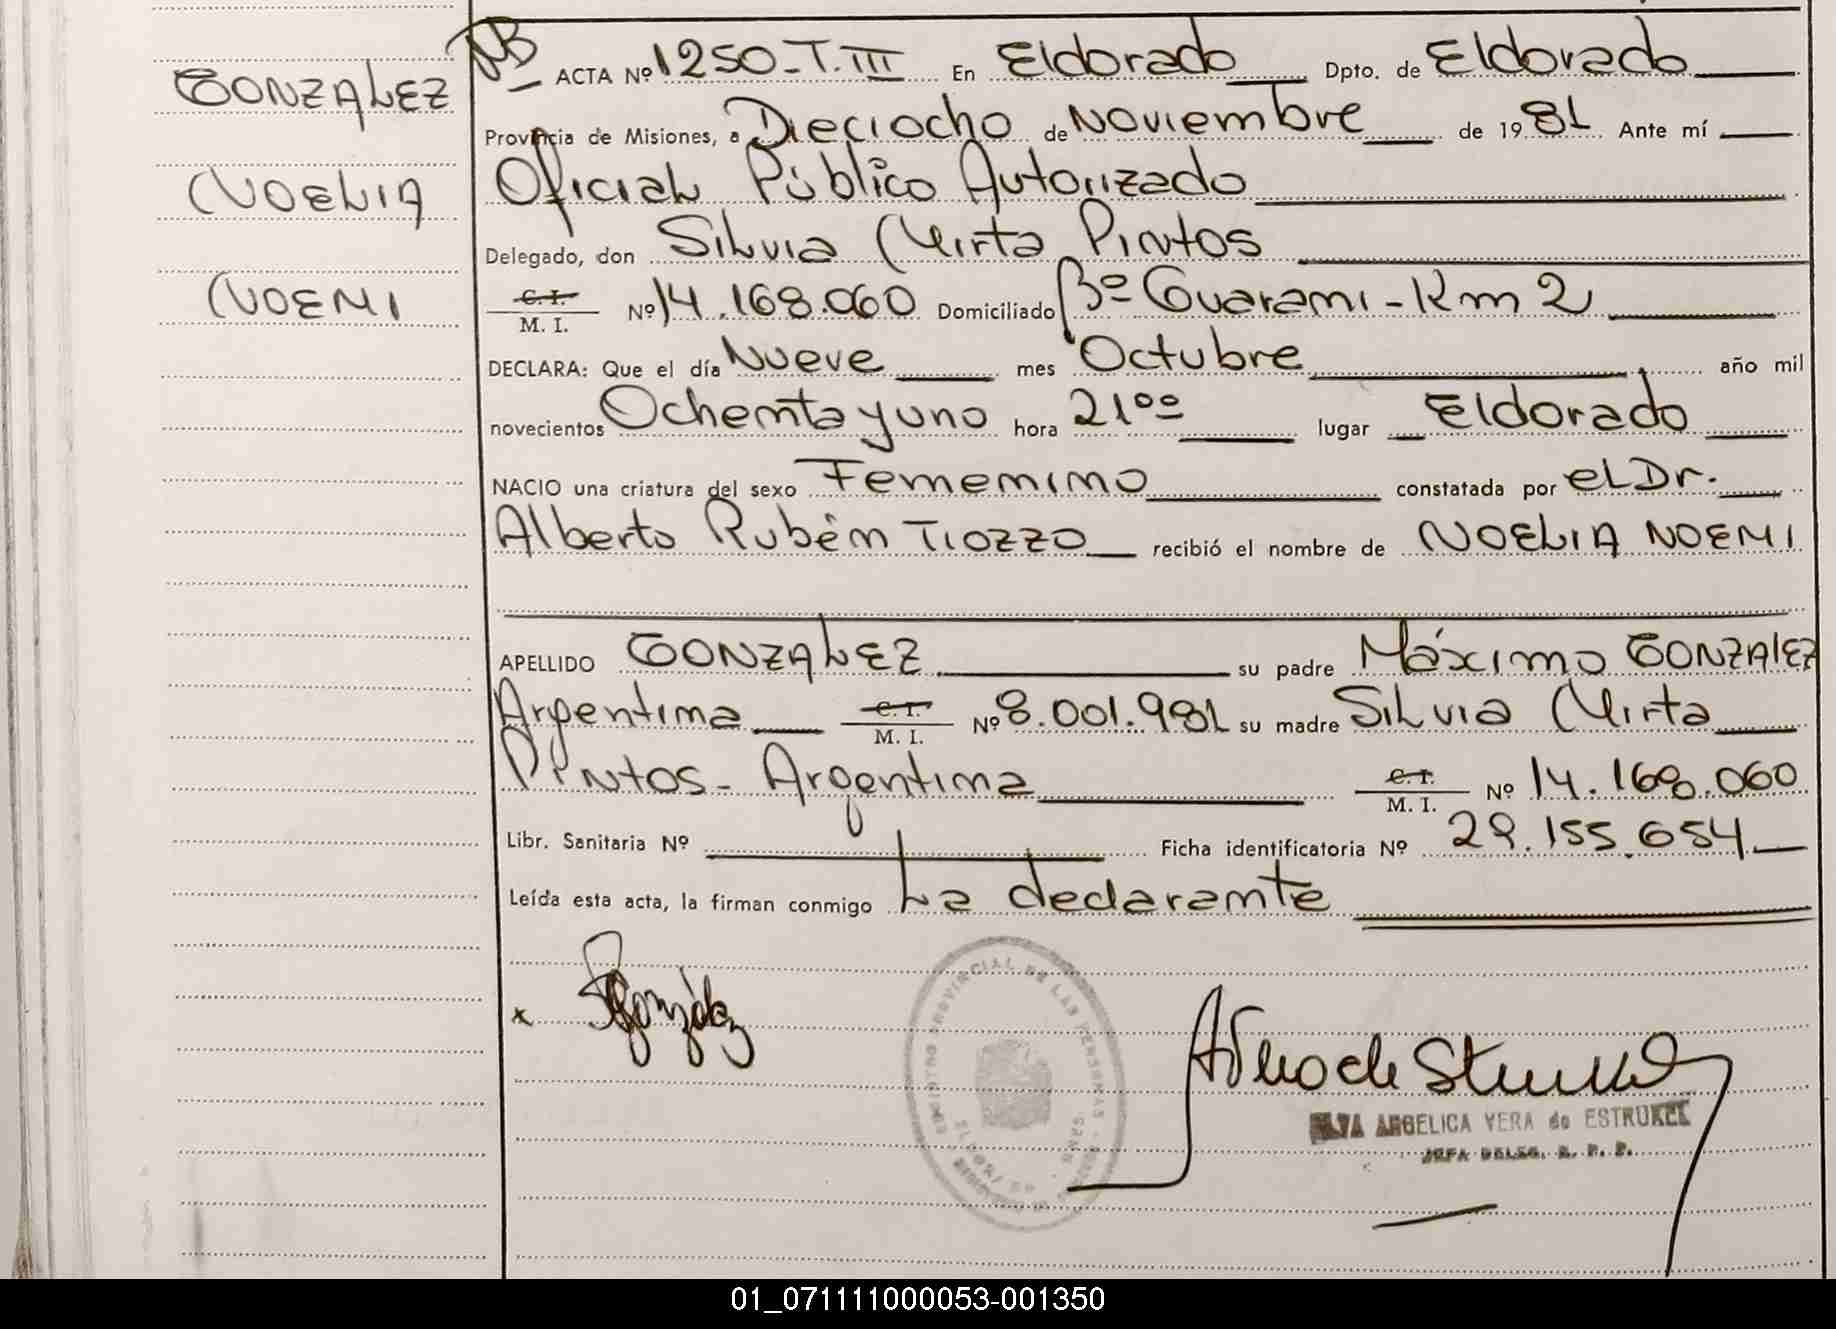 GONZALEZ
NOELIA
NOEMI
NB
ACTA Nº 1250-T.III En Eldorado Dpto. de Eldorado
Provincia de Misiones, a Dieciocho de Noviembre de 1981 Ante mí
Oficial Público Autorizado
Delegado, don Silvia Mirta Pintos
C. I.
M. I. Nº 14.168.060 Domiciliado Bº Guarani - Km 2
DECLARA: Que el día Nueve mes Octubre año mil
novecientos Ochenta y uno hora 21⁰⁰ lugar Eldorado
NACIO una criatura del sexo Femenino constatada por el Dr.
Alberto Rubén Tiozzo recibió el nombre de NOELIA NOEMI
APELLIDO GONZALEZ su padre Máximo GONZALEZ
Argentina C. I. M. I. Nº 8.001.981 su madre Silvia Mirta
Pintos - Argentina C. I. M. I. Nº 14.168.060
Libr. Sanitaria Nº Ficha identificatoria Nº 29.155.654.
Leída esta acta, la firman conmigo La declarante
x SGonzález
REGISTRO PROVINCIAL DE LAS PERSONAS
ANGELICA VERA de ESTRUKEL
JEFA DELEG. R. P. P.
01_071111000053-001350